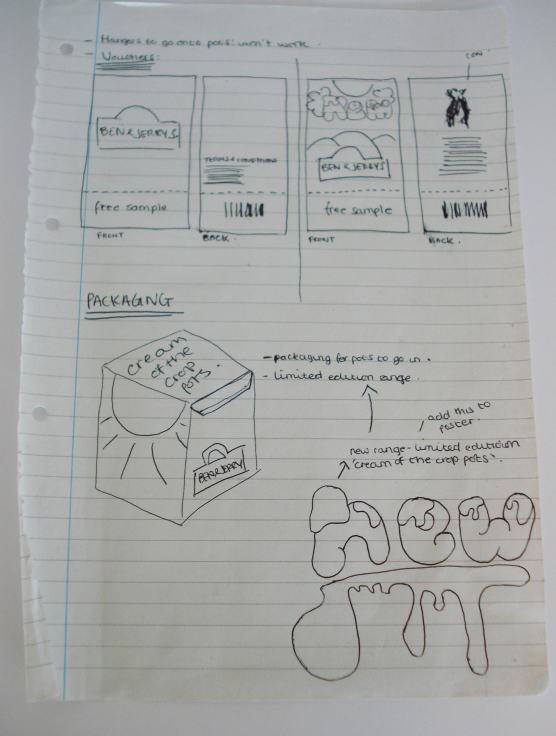 - Hangers to go onto pots: won't work.
- Vouchers:
COW.
BEN & JERRYS
TERMS & CONDITIONS
free sample
FRONT
BACK.
New
BEN & JERRYS
free sample
FRONT
BACK.
PACKAGING
cream
of the
crop
pots.
BEN & JERRY
- packaging for pots to go in.
- limited edition range.
add this to
poster.
new range - limited edition
'cream of the crop pots'.
new